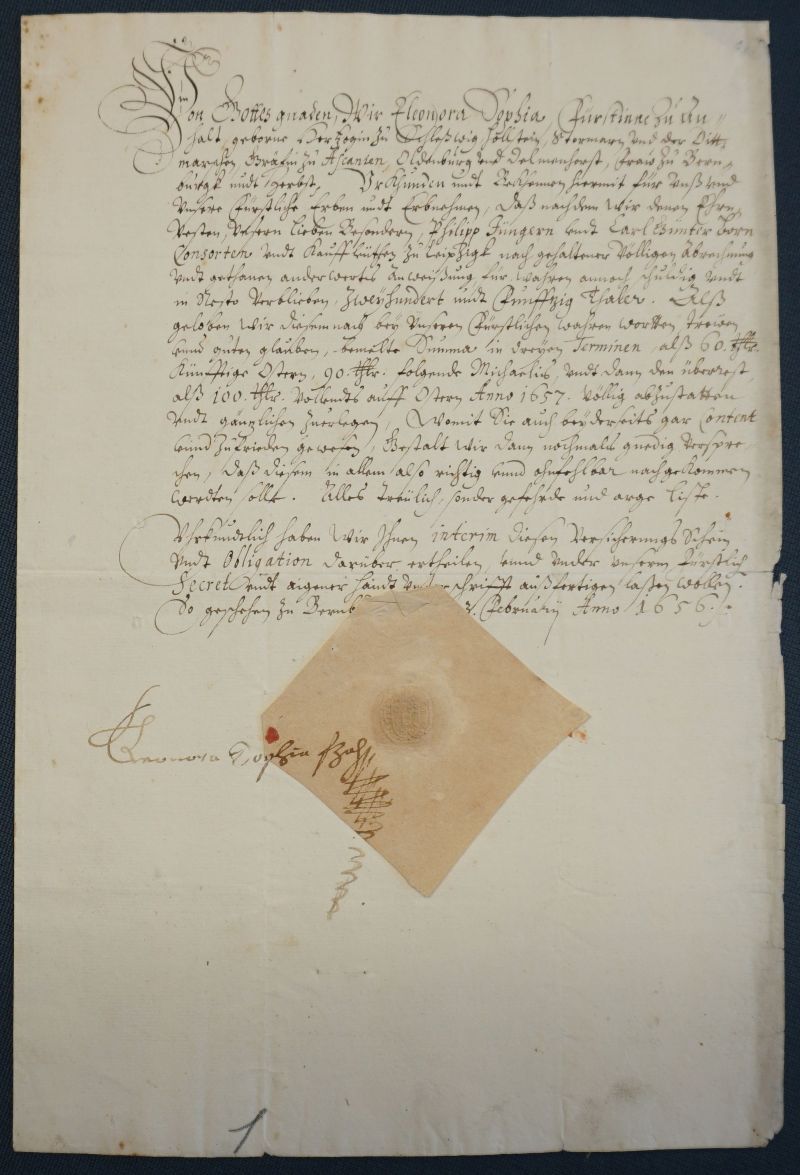 Von Gottes gnaden, Wir Eleonora Sophia, Fürstinne zu An-
halt, geborne Hertzogin zu Schleßwig Hollstein, Stormarn vnd der Ditt-
marschen, Gräfin zu Ascanien, Oldenburg vnd Delmenhorst, Fraw zu Bern-
burgk vndt Zerbst, Vrkhunden vndt Bekhennen hiermit für Vnß vnd
Vnsere Fürstliche Erben vndt Erbnehmen, Daß nachdem Wir denen Ehrn-
Vesten, Vnsern Lieben Besondern, Philipp Jüngern vndt Carl Günter Born
Consorten vndt Kauffleuthen zu Leipzigk nach gehaltener Völligen Abrechnung
vndt gethanen anderwerts Anweißung für wahren annoch schuldig vndt
in Resto Verblieben, Zweyhundert vndt Funfftzig Thaler. Alß
geloben Wir diesem nach bey Vnseren Fürstlichen wahren wortten, trewen
vnnd guten glauben, bemelte Summa in dreyen Terminen, alß 60. thlr.
Künfftige Ostern, 90. thlr. folgende Michaelis, vndt dann den überrest,
alß 100. thlr. Vollendts auff Ostern Anno 1657. Völlig abzustatten
vndt gäntzlichen Zuerlegen, Womit Sie auch beyderseits gar Content
vnnd Zufrieden gewesen, Gestalt Wir dann nochmals gnedig Verspre-
chen, Daß diesem in allem also richtig vnnd ohnfehlbar nachgekommen
werdten solle. Alles Treulich, sonder gefehrde vnd arge Liste.
Vhrkundtlich haben Wir Ihnen interim diesen Versicherungs Schein
vndt Obligation darüber ertheilen, vnnd vnder vnserm Fürstlich
Secret vndt aigener Handt vnterschrifft außfertigen laßen wollen.
So geschehen Zu Bernb Februarij Anno 1656.
Eleonora Sophia fzah
1